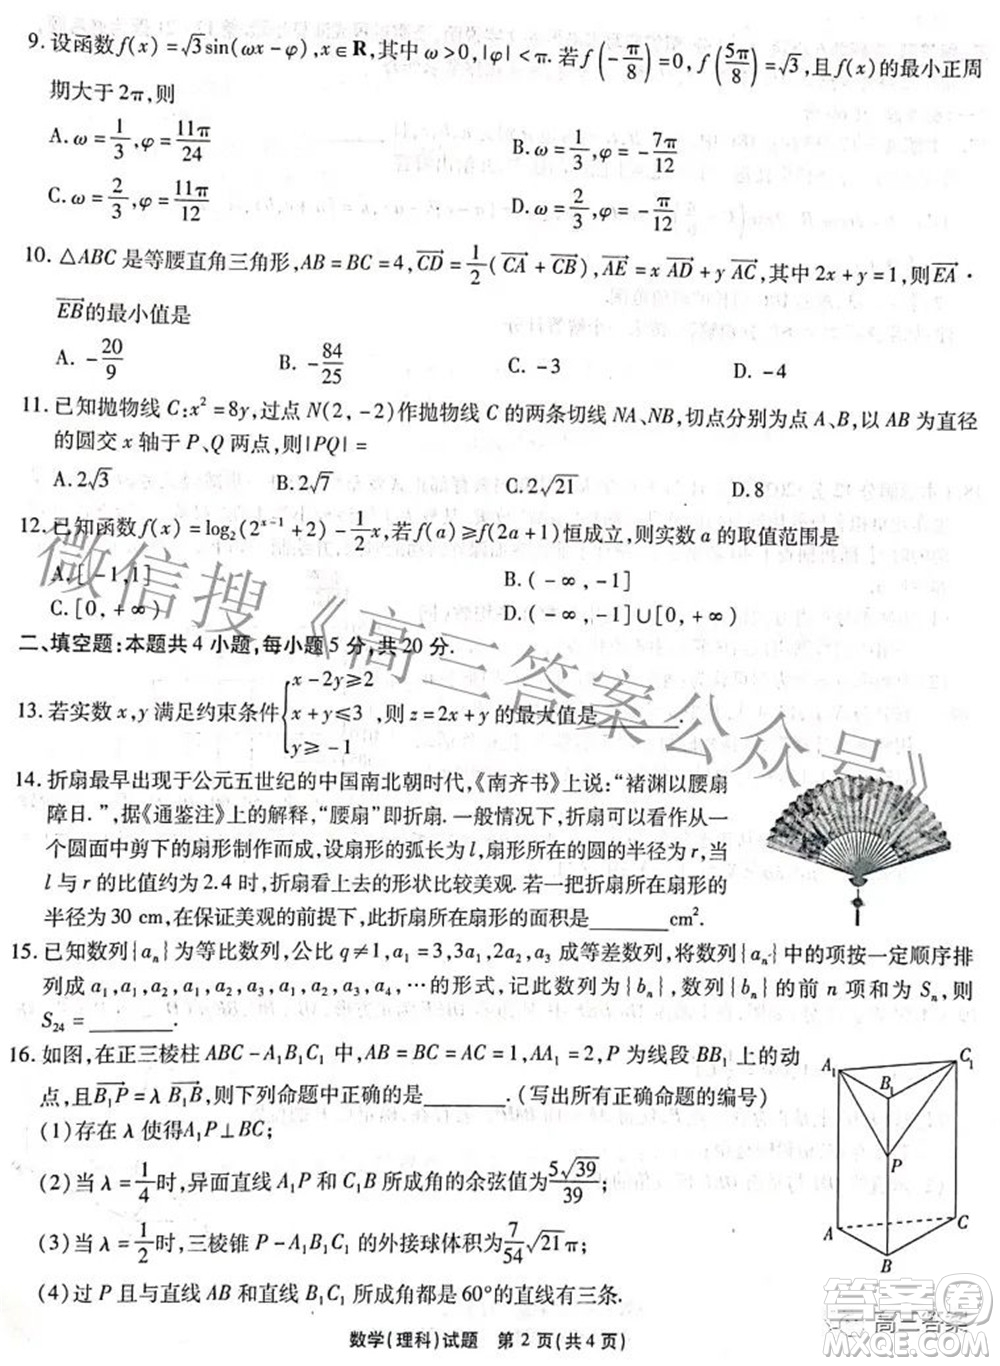 9. 设函数f(x)=√3sin(ωx-φ),x∈R,其中ω>0,|φ|<π.若f(-π/8)=0,f(5π/8)=√3,且f(x)的最小正周
期大于2π,则
A. ω=1/3,φ=11π/24
B. ω=1/3,φ=-7π/12
C. ω=2/3,φ=11π/12
D. ω=2/3,φ=-π/12
10. △ABC 是等腰直角三角形,AB=BC=4,CD=1/2(CA+CB),AE=x AD+y AC,其中2x+y=1,则EA·
EB的最小值是
A. -20/9
B. -84/25
C. -3
D. -4
11. 已知抛物线 C:x²=8y,过点 N(2,-2)作抛物线 C 的两条切线 NA、NB,切点分别为点 A、B,以 AB 为直径
的圆交 x 轴于 P、Q 两点,则|PQ|=
A. 2√3
B. 2√7
C. 2√21
D. 8
12. 已知函数 f(x)=log₂(2ˣ⁻¹+2)-1/2x,若 f(a)≥f(2a+1)恒成立,则实数 a 的取值范围是
A. [-1,1]
B. (-∞,-1]
C. [0,+∞)
D. (-∞,-1]∪[0,+∞)
二、填空题:本题共 4 小题,每小题 5 分,共 20 分.
13. 若实数 x,y 满足约束条件{x-2y≥2
x+y≤3 ,则 z=2x+y 的最大值是________.
y≥-1
14. 折扇最早出现于公元五世纪的中国南北朝时代,《南齐书》上说:“褚渊以腰扇
障日.”,据《通鉴注》上的解释,“腰扇”即折扇. 一般情况下,折扇可以看作从
一个圆面中剪下的扇形制作而成,设扇形的弧长为 l,扇形所在的圆的半径为 r,当
l 与 r 的比值约为 2.4 时,折扇看上去的形状比较美观. 若一把折扇所在扇形的
半径为 30 cm,在保证美观的前提下,此折扇所在扇形的面积是________cm².
15. 已知数列{aₙ}为等比数列,公比 q≠1,a₁=3,3a₁,2a₂,a₃ 成等差数列,将数列{aₙ}中的项按一定顺序排
列成 a₁,a₁,a₂,a₁,a₂,a₃,a₁,a₂,a₃,a₄,…的形式,记此数列为{bₙ},数列{bₙ}的前 n 项和为 Sₙ,则
S₂₄=________.
16. 如图,在正三棱柱 ABC-A₁B₁C₁ 中,AB=1,AA₁=2,P 为线段 BB₁ 上的动
点,且B₁P=λ B₁B,则下列命题中正确的是________.(写出所有正确命题的编号)
(1)存在 λ 使得A₁P⊥BC;
(2)当 λ=1/4时,异面直线 A₁P 和 B₁C₁ 所成角的余弦值为5√39/39;
(3)当 λ=1/2时,三棱锥 P-A₁B₁C₁ 的外接球体积为7/54√21π;
(4)过 P 且与直线 AB 和直线 B₁C₁ 所成角都是 60°的直线有三条.
A₁
B₁
C₁
P
A
C
B
数学(理科)试题 第 2 页(共 4 页)
微信搜《高三答案公众号》
答案圈
高三答案